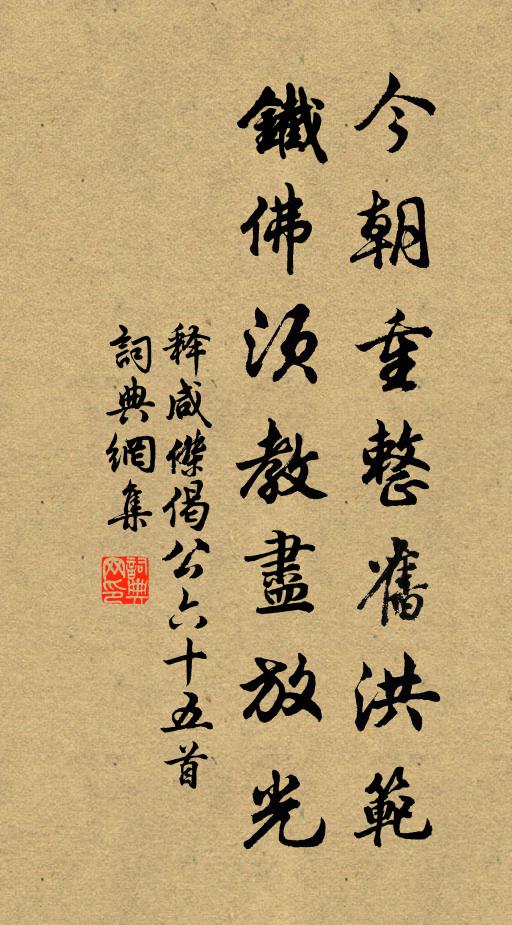 今朝重整舊洪範
鐵佛須教盡放光
释咸傑偈公六十五首
詞典網集
詞典網印